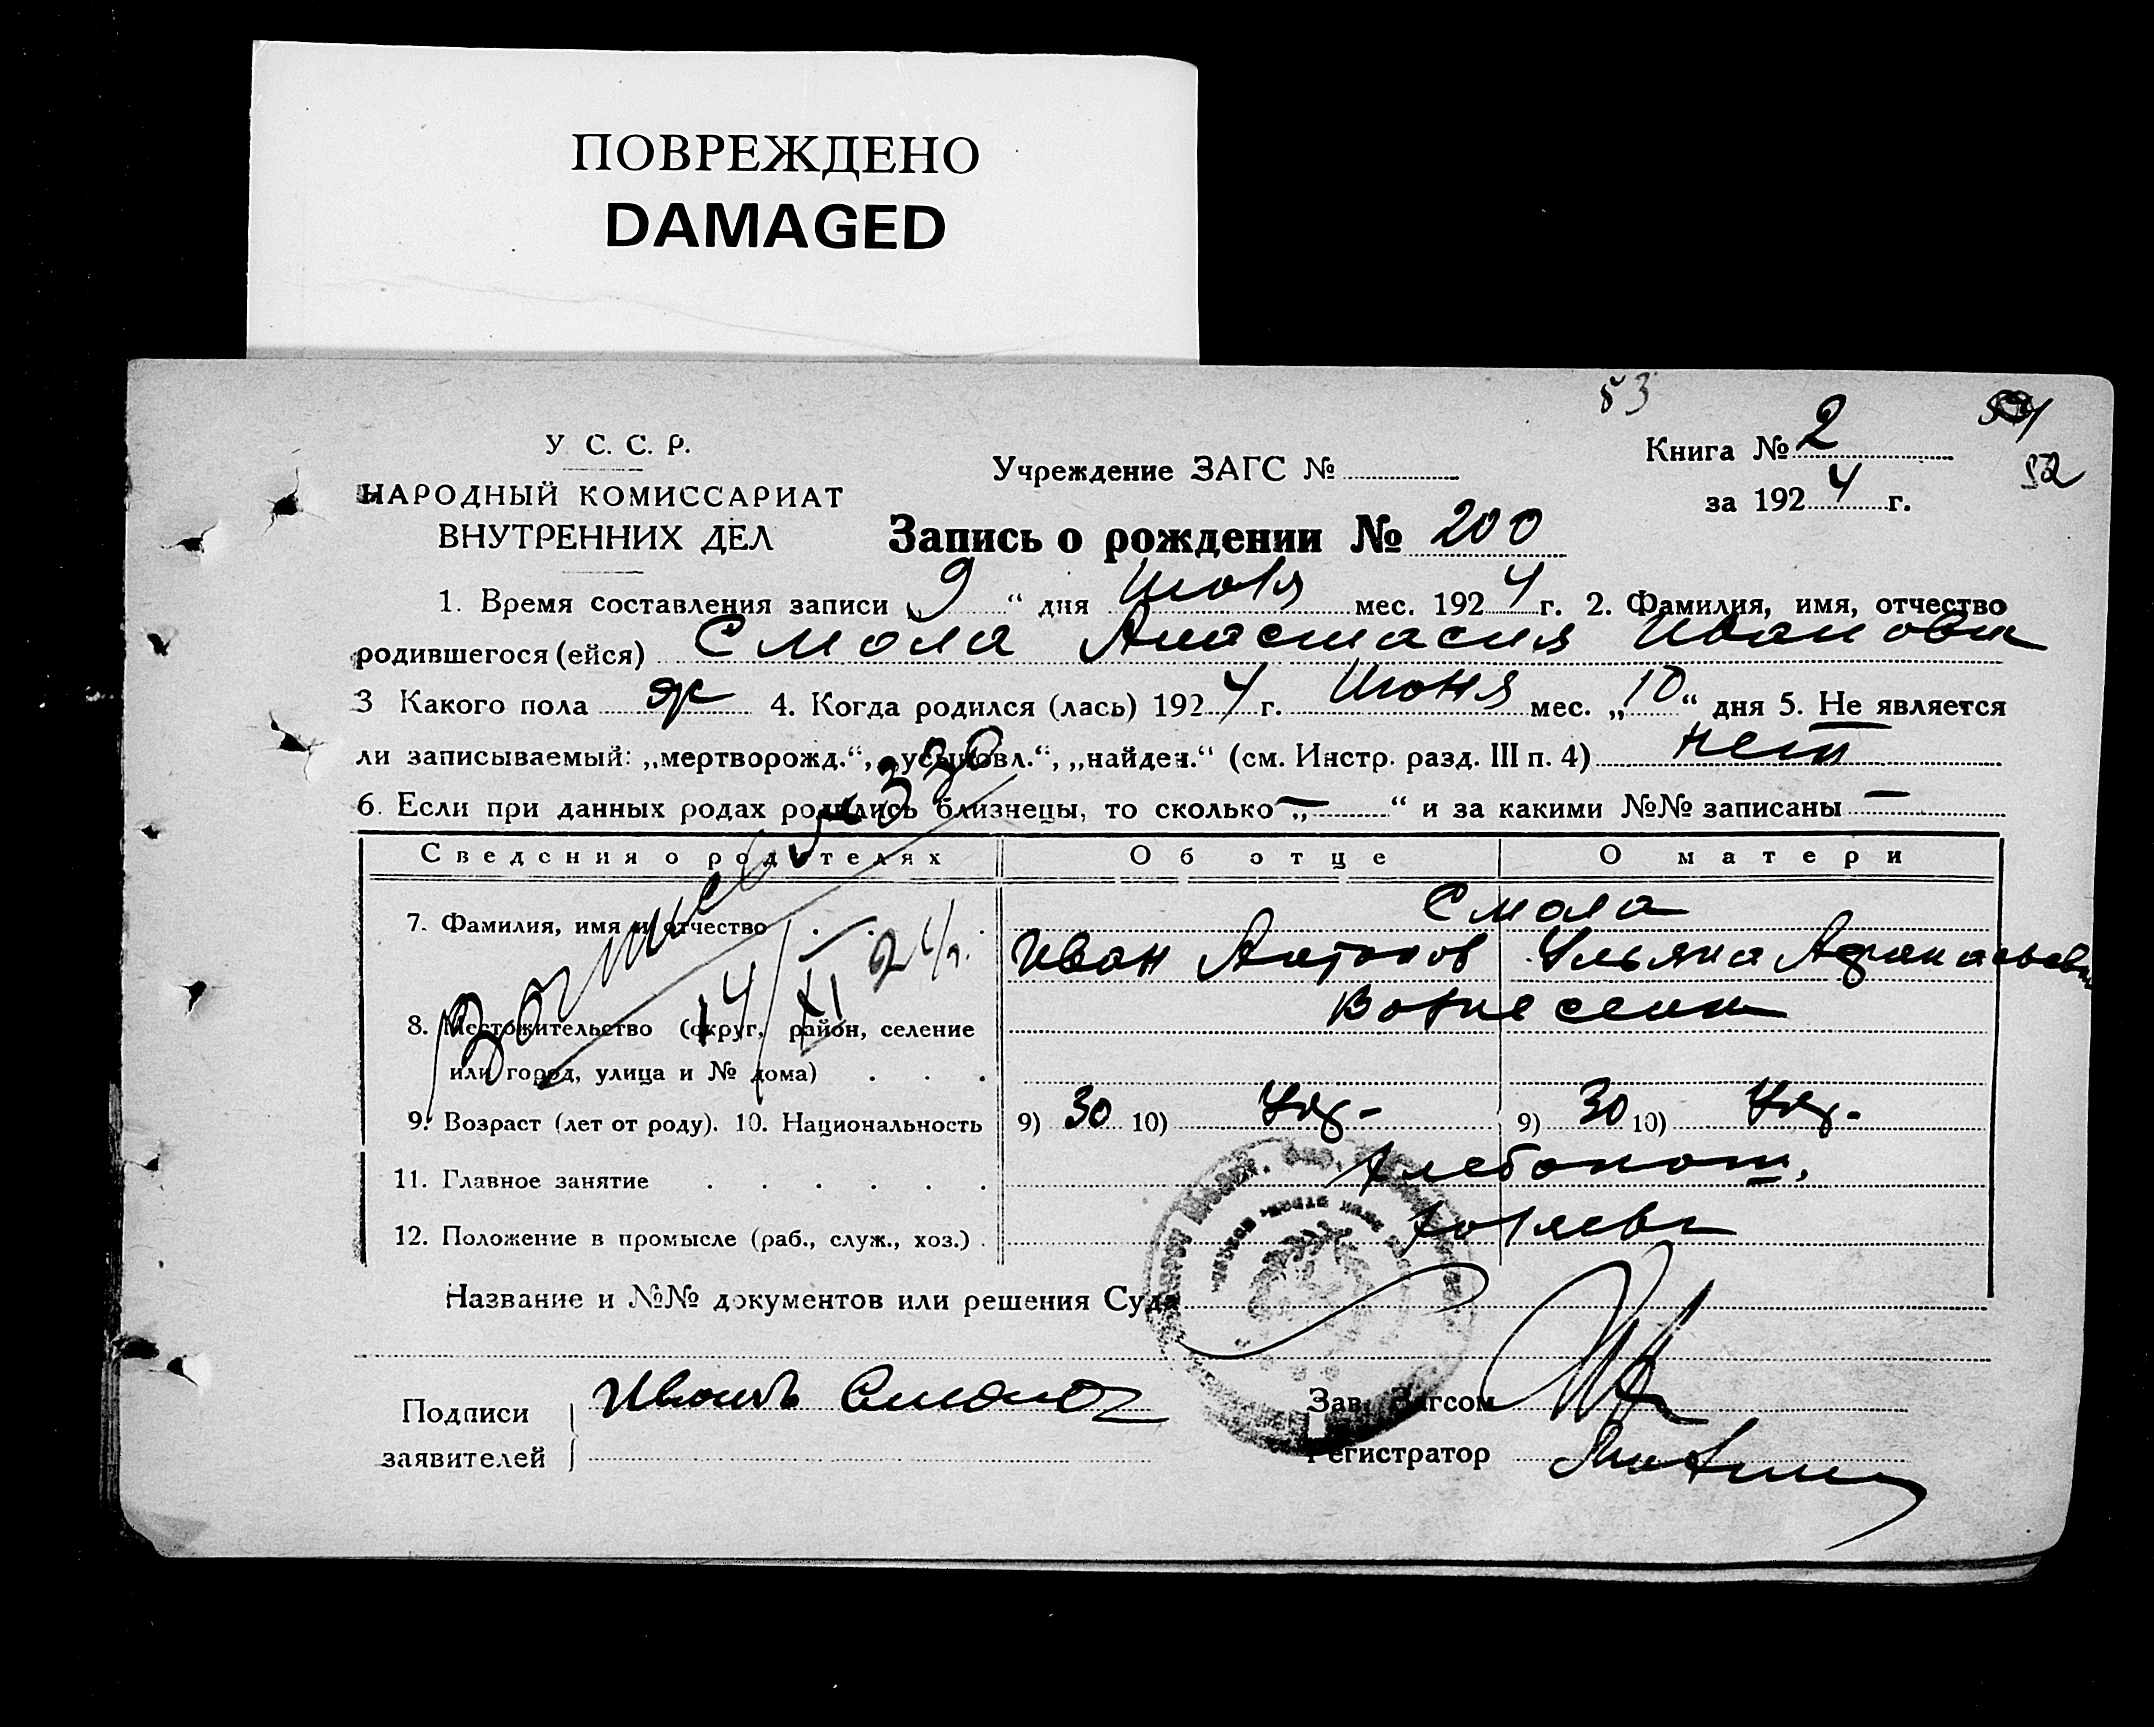 ПОВРЕЖДЕНО
DAMAGED
53
У. С. С. Р.
НАРОДНЫЙ КОМИССАРИАТ
ВНУТРЕННИХ ДЕЛ
Учреждение ЗАГС №
Книга № 2
52
за 1924 г.
Запись о рождении № 200
1. Время составления записи „9“ дня июля мес. 1924 г. 2. Фамилия, имя, отчество
родившегося (ейся) Смола Анастасия Ивановн
3 Какого пола ж 4. Когда родился (лась) 1924 г. июня мес. „10“ дня 5. Не является
ли записываемый: „мертворожд.“, „усыновл.“, „найден.“ (см. Инстр. разд. III п. 4) нет
6. Если при данных родах родились близнецы, то сколько „—“ и за какими №№ записаны —
Сведения о родителях Об отце О матери
7. Фамилия, имя и отчество Смола
Иван Антонов Ульяна Афанасьевн
14/XI 24 г.
8. Местожительство (округ, район, селение
или город, улица и № дома)
9. Возраст (лет от роду). 10. Национальность 9) 30 10) Укр- 9) 30 10) Укр-
11. Главное занятие Хлебопаш,
12. Положение в промысле (раб., служ., хоз.) хозяева
Название и №№ документов или решения Суда
Подписи
заявителей
Иванъ Смола
Зав. Загсом
Регистратор